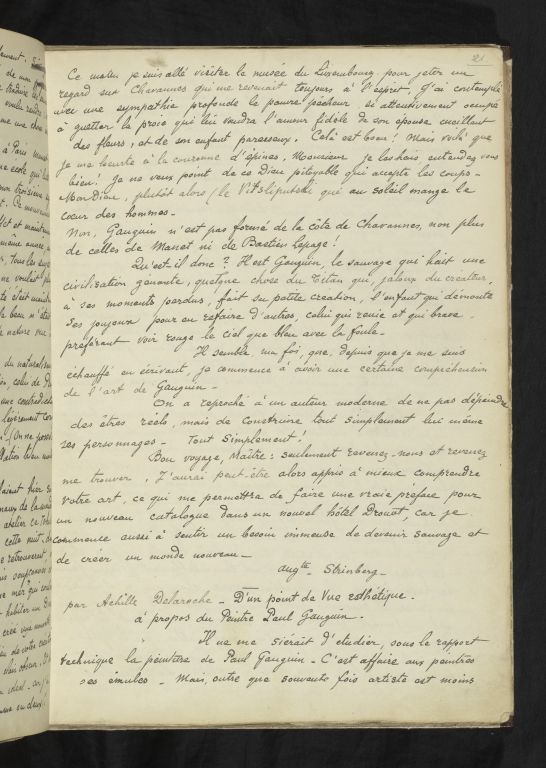 21
Ce matin je suis allé visiter le musée du Luxembourg pour jeter un
regard sur Chavannes qui me revenait toujours à l'esprit. J'ai contemplé
avec une sympathie profonde le pauvre pêcheur si attentivement occupé
à guetter la proie qui lui vaudra l'amour fidèle de son épouse cueillant
des fleurs, et de son enfant paresseux. Celà est beau! Mais voilà que
je me heurte à la couronne d'épines, Monsieur je les hais, entendez vous
bien! Je ne veux point de ce Dieu pitoyable qui accepte les coups_
Mon Dieu, plutôt alors le Vitsliputski qui au soleil mange le
cœur des hommes_
Non, Gauguin n'est pas formé de la côte de Chavannes, non plus
de celles de Manet ni de Bastien Lepage!
Qu'est-il donc? Il est Gauguin, le sauvage qui hait une
civilisation gênante, quelque chose du Titan qui, jaloux du créateur,
à ses moments perdus, fait sa petite création, l'enfant qui démonte
ses joujoux pour en refaire d'autres, celui qui renie et qui brave_
préférant voir rouge le ciel que bleu avec la foule_
Il semble, ma foi, que, depuis que je me suis
échauffé en écrivant, je commence à avoir une certaine compréhension
de l'art de Gauguin_
On a reproché à un auteur moderne de ne pas dépeindre
des êtres réels, mais de construire tout simplement lui même
ses personnages_ Tout simplement!
Bon voyage, Maître: seulement revenez-nous et revenez
me trouver. J'aurai peut-être alors appris à mieux comprendre
votre art, ce qui me permettra de faire une vraie préface pour
un nouveau catalogue dans un nouvel hôtel Drouot, car je
commence aussi à sentir un besoin immense de devenir sauvage et
de créer un monde nouveau_
Augte Strinberg_
par Achille Delaroche_ D'un point de Vue esthétique.
à propos du Peintre Paul Gauguin.
Il ne me siérait d'étudier, sous le rapport
technique la peinture de Paul Gauguin_ C'est affaire aux peintres
ses émules_ Mais, outre que souvente fois artiste est moins